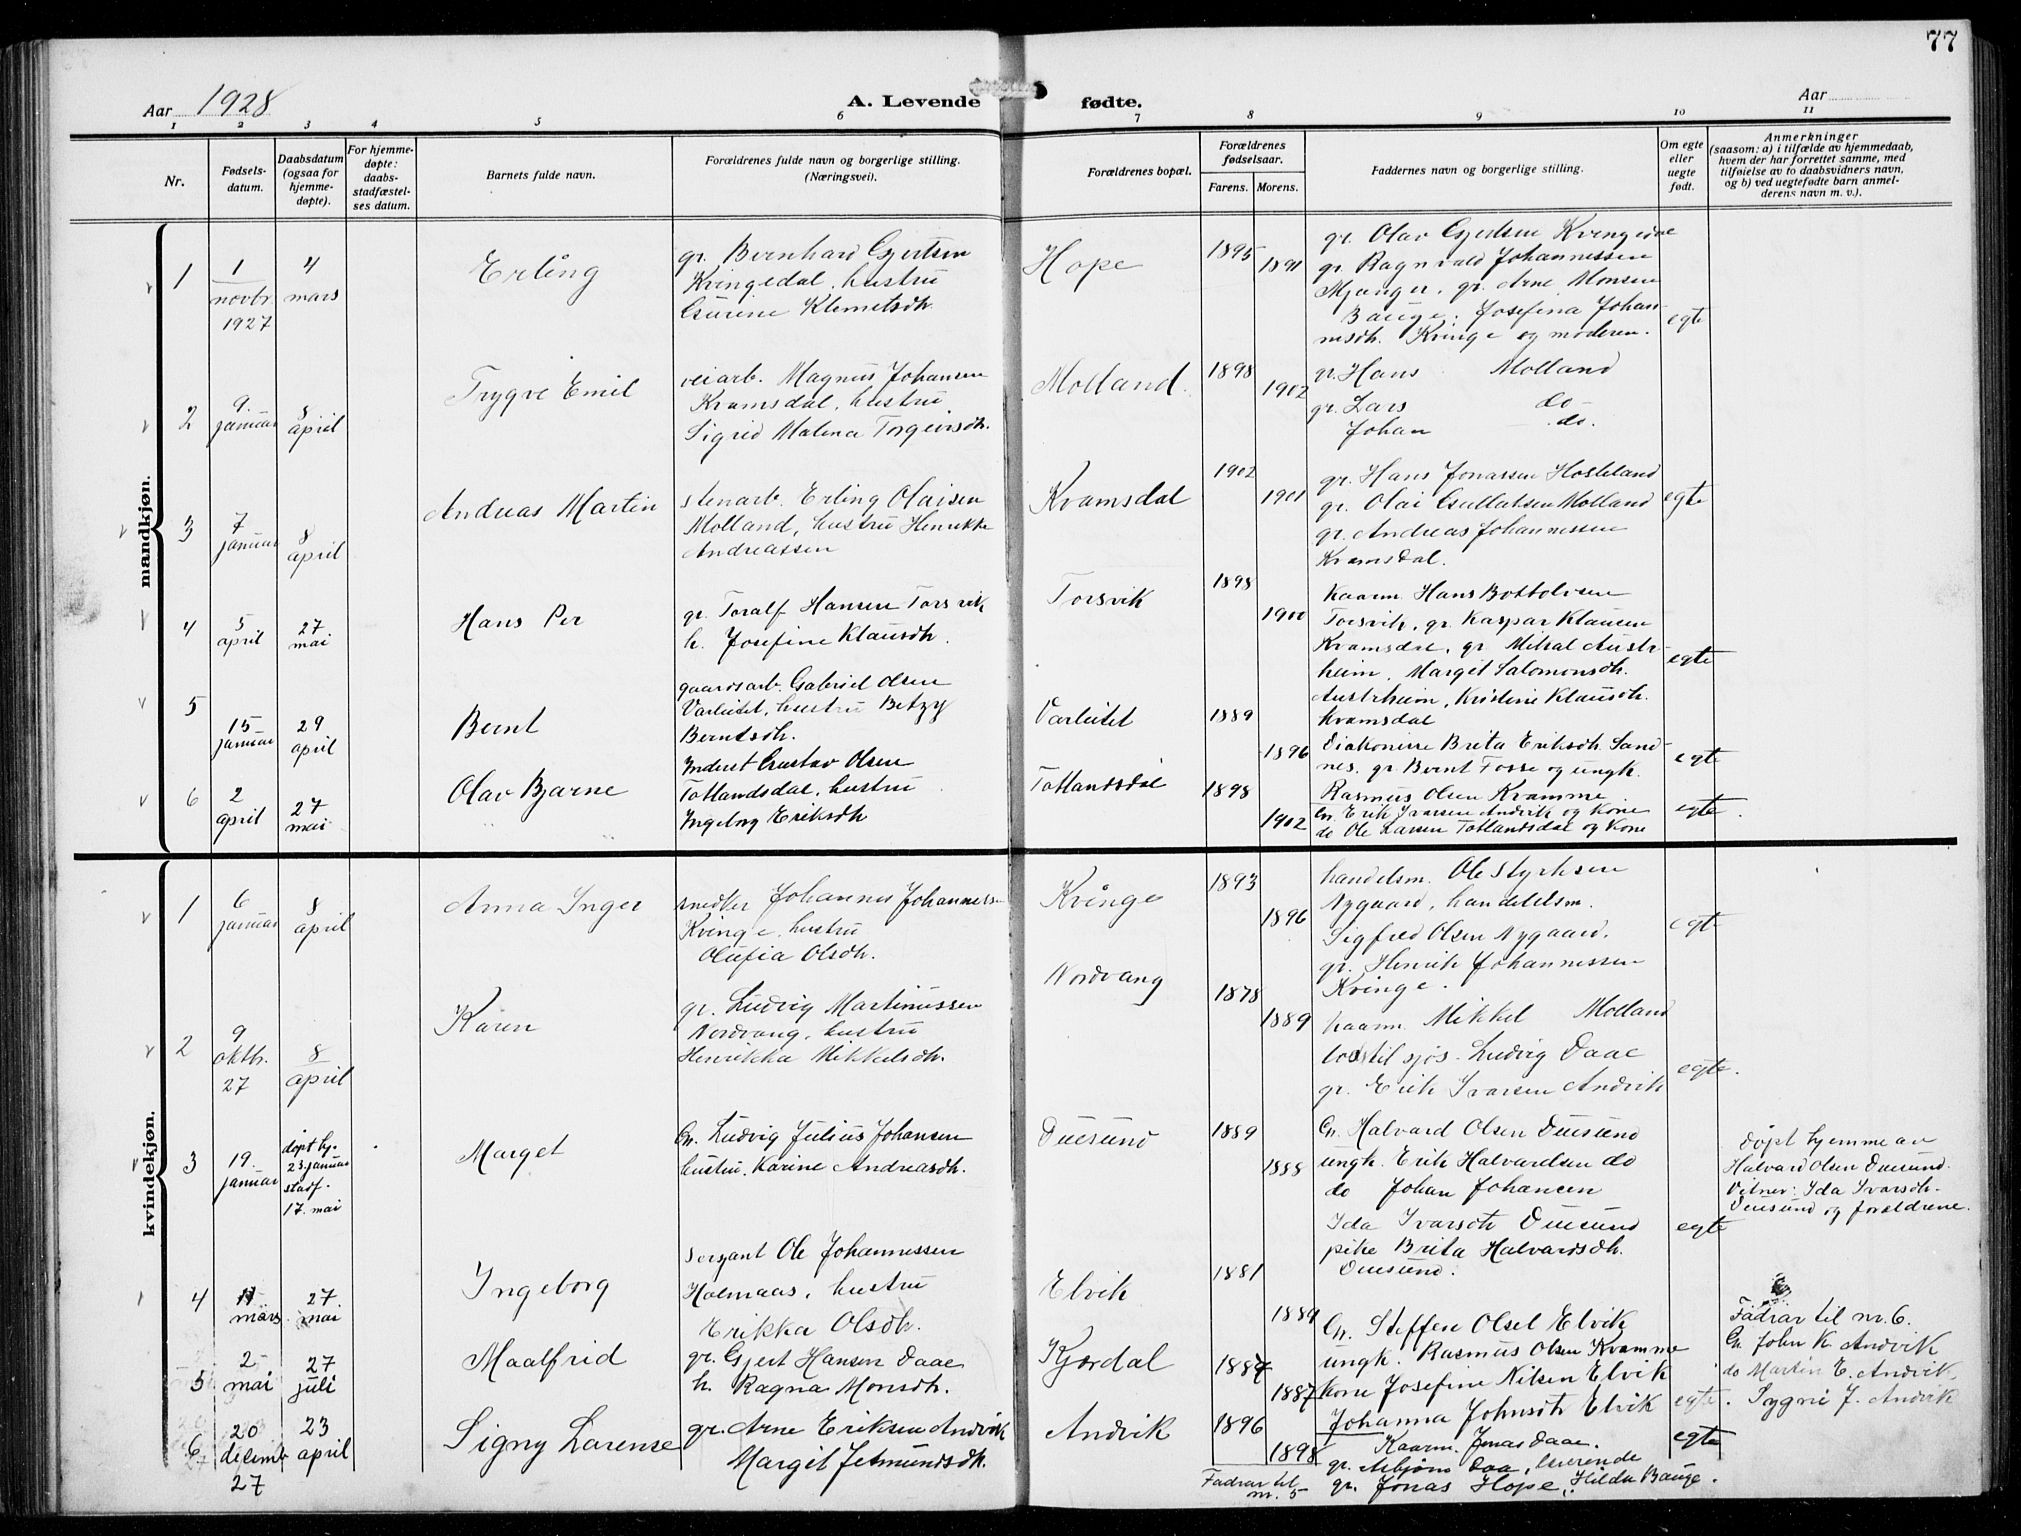 77
Aar 1928
A. Levende fødte.
Aar
1 2 3 4 5 6 7 8 9 10 11
Nr.
Fødsels-
datum.
Daabsdatum
(ogsaa for
hjemme-
døpte).
For hjemme-
døpte:
daabs-
stadfæstel-
ses datum.
Barnets fulde navn.
Forældrenes fulde navn og borgerlige stilling.
(Næringsvei).
Forældrenes bopæl.
Forældrenes
fødselsaar.
Farens. Morens.
Faddernes navn og borgerlige stilling.
Om egte
eller
uegte
født.
Anmerkninger
(saasom: a) i tilfælde av hjemmedaab,
hvem der har forrettet samme, med
tilføielse av to daabsvidners navn,
og b) ved uegtefødte barn anmel-
derens navn m. v.).
mandkjøn.
1
1
novbr.
1927
4
mars
Erling
gr. Bernhard Gjertsen
Kvingedal, hustru
Gurine Klemetsdtr.
Hope
1895
1891
gr. Olav Gjertsen Kvingedal
gr. Ragnvald Johannessen
Mjanger, gr. Arne Monsen
Bauge, Josefina Johan-
nesdh. Kvinge og moderen.
egte
2
9.
januar
8
april
Trygve Emil
veiarb. Magnus Johansen
Kramsdal, hustru
Sigrid Malena Torgeirsdh.
Molland
1898
1902
gr. Hans Molland
gr. Lars do
Johan do.
3
7
januar
8
april
Andreas Martin
stenarb. Erling Olaisen
Molland, hustru Henrikke
Andreassen
Kvamsdal
1902
1901
gr. Hans Jonassen Hosteland
gr. Olai Gullaksen Molland
gr. Andreas Johannessen
Kvamsdal.
egte
4
5
april
27
mai
Hans Per
gr. Toralf Hansen Torsvik
h. Josefine Klausdh.
Torsvik
1898
1900
Kaarm. Hans Bottolvsen
Torsvik, gr. Kaspar Klausen
Kramsdal, gr. Mikal Austr-
heim, Margit Salomonsdh.
Austrheim, Kristine Klausdh.
Kvamsdal
egte
5
15
januar
29
april
Bernt
gaardsarb. Gabriel Olsen
Varleitet, hustru Betzy
Berntsdh.
Varleitet
1889
1896
Diakonisse Brita Eriksdh. Sand-
nes. gr. Bernt Fosse og ungk.
Rasmus Olsen Kramme
egte
6
2
april
27
mai
Olav Bjarne
Inderst Gustav Olsen
Totlandsdal, hustru
Ingeborg Eriksdh
Totlandsdal
1898
1902
Gr. Erik Ivarsen Andvik og Kone
do Ole Larsen Totlandsdal og Kone
egte.
kvindekjøn.
1
6
januar
8
april
Anna Inger
snedker Johannes Johannesse
Kvinge, hustru
Olufia Olsdh.
Kvinge
1893
1896
handelsm. Ole Styrksen
Nygaard, handelsm.
Sigfred Olsen Nygaard.
gr. Henrik Johannessen
Kvinge.
egte
2
9
oktbr.
27
8
april
Karen
gr. Ludvig Martinussen
Nordvang, hustru
Henrikka Mikkelsdh.
Nordvang
1878
1889
kaarm. Mikkel Molland
lods til sjøs. Ludvig Daae
gr. Erik Ivarsen Andvik
egte.
3
19.
januar
døpt hj.
23. januar
stadf.
17. mai
Marget
Gr. Ludvig Julius Johansen
hustru. Karine Andreasdh.
Duesund
1889
1888
Gr. Halvard Olsen Duesund
ungk. Erik Halvardsen do
do Johan Johansen
Ida Ivarsdtr Duesund
pike Brita Halvardsdh.
Duesund.
egte
døpt hjemme av
Halvard Olsen Duesund.
Vitner: Ida Ivarsdh.
Duesund og foreldrene.
4
mars
27
mai
Ingeborg
Sersjant Ole Johannessen
Holmaas, hustru
Erikka Olsdh.
Elvik
1881
1889
Gr. Steffen Olsel Elvik
ungk. Rasmus Olsen Kramme
kone Josefine Nilsen Elvik
Johanna Johnsdtr Elvik
5
2
mai
27
juli
Maalfrid
gr. Gjert Hansen Daae
h. Ragna Monsdh.
Kjørdal
1887
egte.
6
20
decemb
27
23
april
Signy Larense
gr. Arne Eriksen Andvik
Margit Jetmundsdh.
Andvik
1896
1898
egte
Fadrar til nr. 6.
Gr. John K. Andvik
do Martin E. Andvik,
Sygni J. Andvik
Fadrar til
nr. 5
Kaarm. Jonas Daae.
gr. Asbjørn Daa, lærerinde
gr. Jonas Hope, Hilda Bauge.